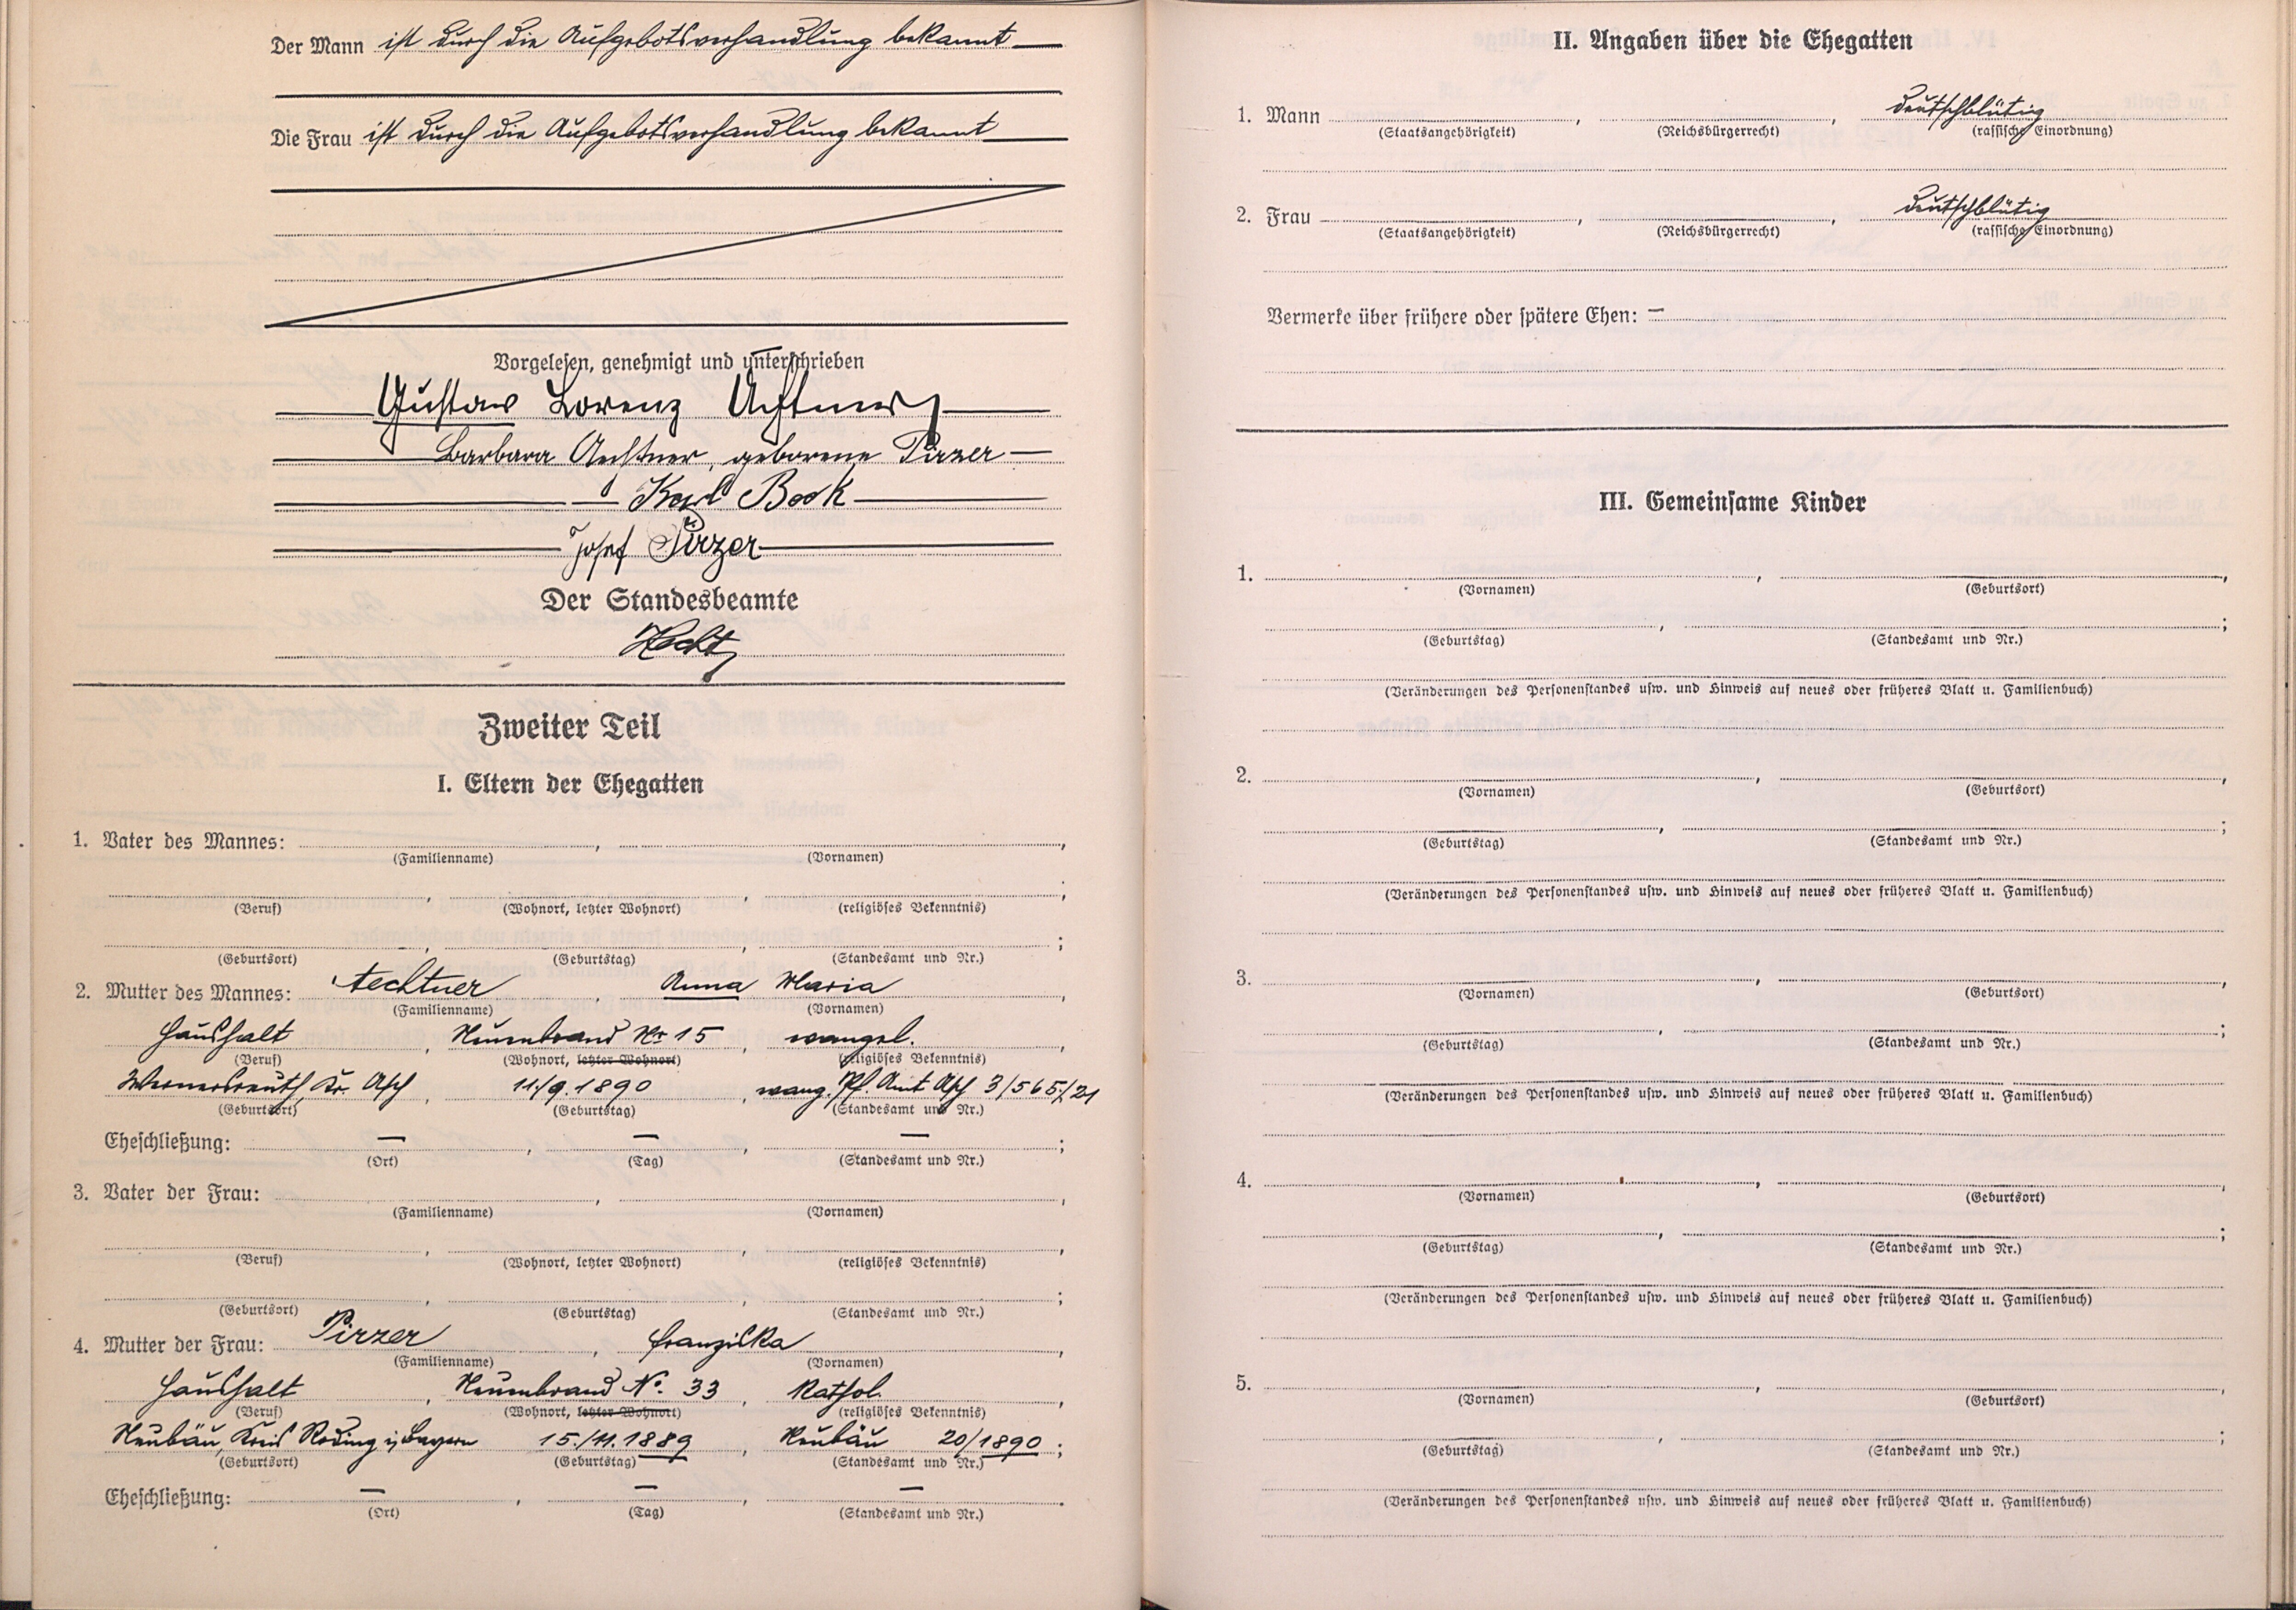 Der Mann ist durch die Aufgebotsverhandlung bekannt
Die Frau ist durch die Aufgebotsverhandlung bekannt
Vorgelesen, genehmigt und unterschrieben
Gustav Lorenz Aechtner
Barbara Aechtner, geborene Pirzer
Karl Book
Josef Pirzer
Der Standesbeamte
Hecht
Zweiter Teil
I. Eltern der Ehegatten
1. Vater des Mannes: , ,
(Familienname) (Vornamen)
, , ,
(Beruf) (Wohnort, letzter Wohnort) (religiöses Bekenntnis)
, , ;
(Geburtsort) (Geburtstag) (Standesamt und Nr.)
2. Mutter des Mannes: Aechtner , Anna Maria ,
(Familienname) (Vornamen)
Haushalt , Neuenbrand Nr 15 , evangel. ,
(Beruf) (Wohnort, letzter Wohnort) (religiöses Bekenntnis)
Wernersreuth, Kr. Asch , 11./9.1890 , evang. Pf. Amt Asch 3/565/21
(Geburtsort) (Geburtstag) (Standesamt und Nr.)
Eheschließung: — , — , — ;
(Ort) (Tag) (Standesamt und Nr.)
3. Vater der Frau: , ,
(Familienname) (Vornamen)
, , ,
(Beruf) (Wohnort, letzter Wohnort) (religiöses Bekenntnis)
, , ;
(Geburtsort) (Geburtstag) (Standesamt und Nr.)
4. Mutter der Frau: Pirzer , Franziska ,
(Familienname) (Vornamen)
Haushalt , Neuenbrand No. 33 , kathol. ,
(Beruf) (Wohnort, letzter Wohnort) (religiöses Bekenntnis)
Neubäu, Kreis Roding i. Bayern 15./11.1889 , Neubäu 20/1890 ;
(Geburtsort) (Geburtstag) (Standesamt und Nr.)
Eheschließung: — , — , — .
(Ort) (Tag) (Standesamt und Nr.)
II. Angaben über die Ehegatten
1. Mann , , deutschblütig
(Staatsangehörigkeit) (Reichsbürgerrecht) (rassische Einordnung)
2. Frau , , deutschblütig
(Staatsangehörigkeit) (Reichsbürgerrecht) (rassische Einordnung)
Vermerke über frühere oder spätere Ehen: —
III. Gemeinsame Kinder
1. , ,
(Vornamen) (Geburtsort)
, ;
(Geburtstag) (Standesamt und Nr.)
(Veränderungen des Personenstandes usw. und Hinweis auf neues oder früheres Blatt u. Familienbuch)
2. , ,
(Vornamen) (Geburtsort)
, ;
(Geburtstag) (Standesamt und Nr.)
(Veränderungen des Personenstandes usw. und Hinweis auf neues oder früheres Blatt u. Familienbuch)
3. , ,
(Vornamen) (Geburtsort)
, ;
(Geburtstag) (Standesamt und Nr.)
(Veränderungen des Personenstandes usw. und Hinweis auf neues oder früheres Blatt u. Familienbuch)
4. , ,
(Vornamen) (Geburtsort)
, ;
(Geburtstag) (Standesamt und Nr.)
(Veränderungen des Personenstandes usw. und Hinweis auf neues oder früheres Blatt u. Familienbuch)
5. , ,
(Vornamen) (Geburtsort)
, ;
(Geburtstag) (Standesamt und Nr.)
(Veränderungen des Personenstandes usw. und Hinweis auf neues oder früheres Blatt u. Familienbuch)